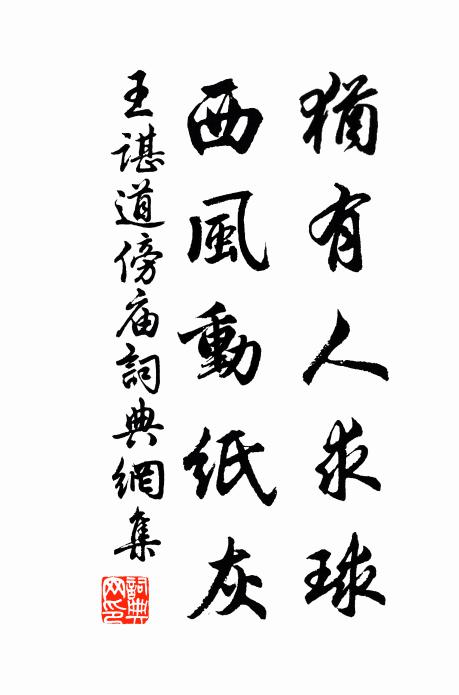 猶有人求球
西風動紙灰
王諶道傍庙詞典網集
詞典網印